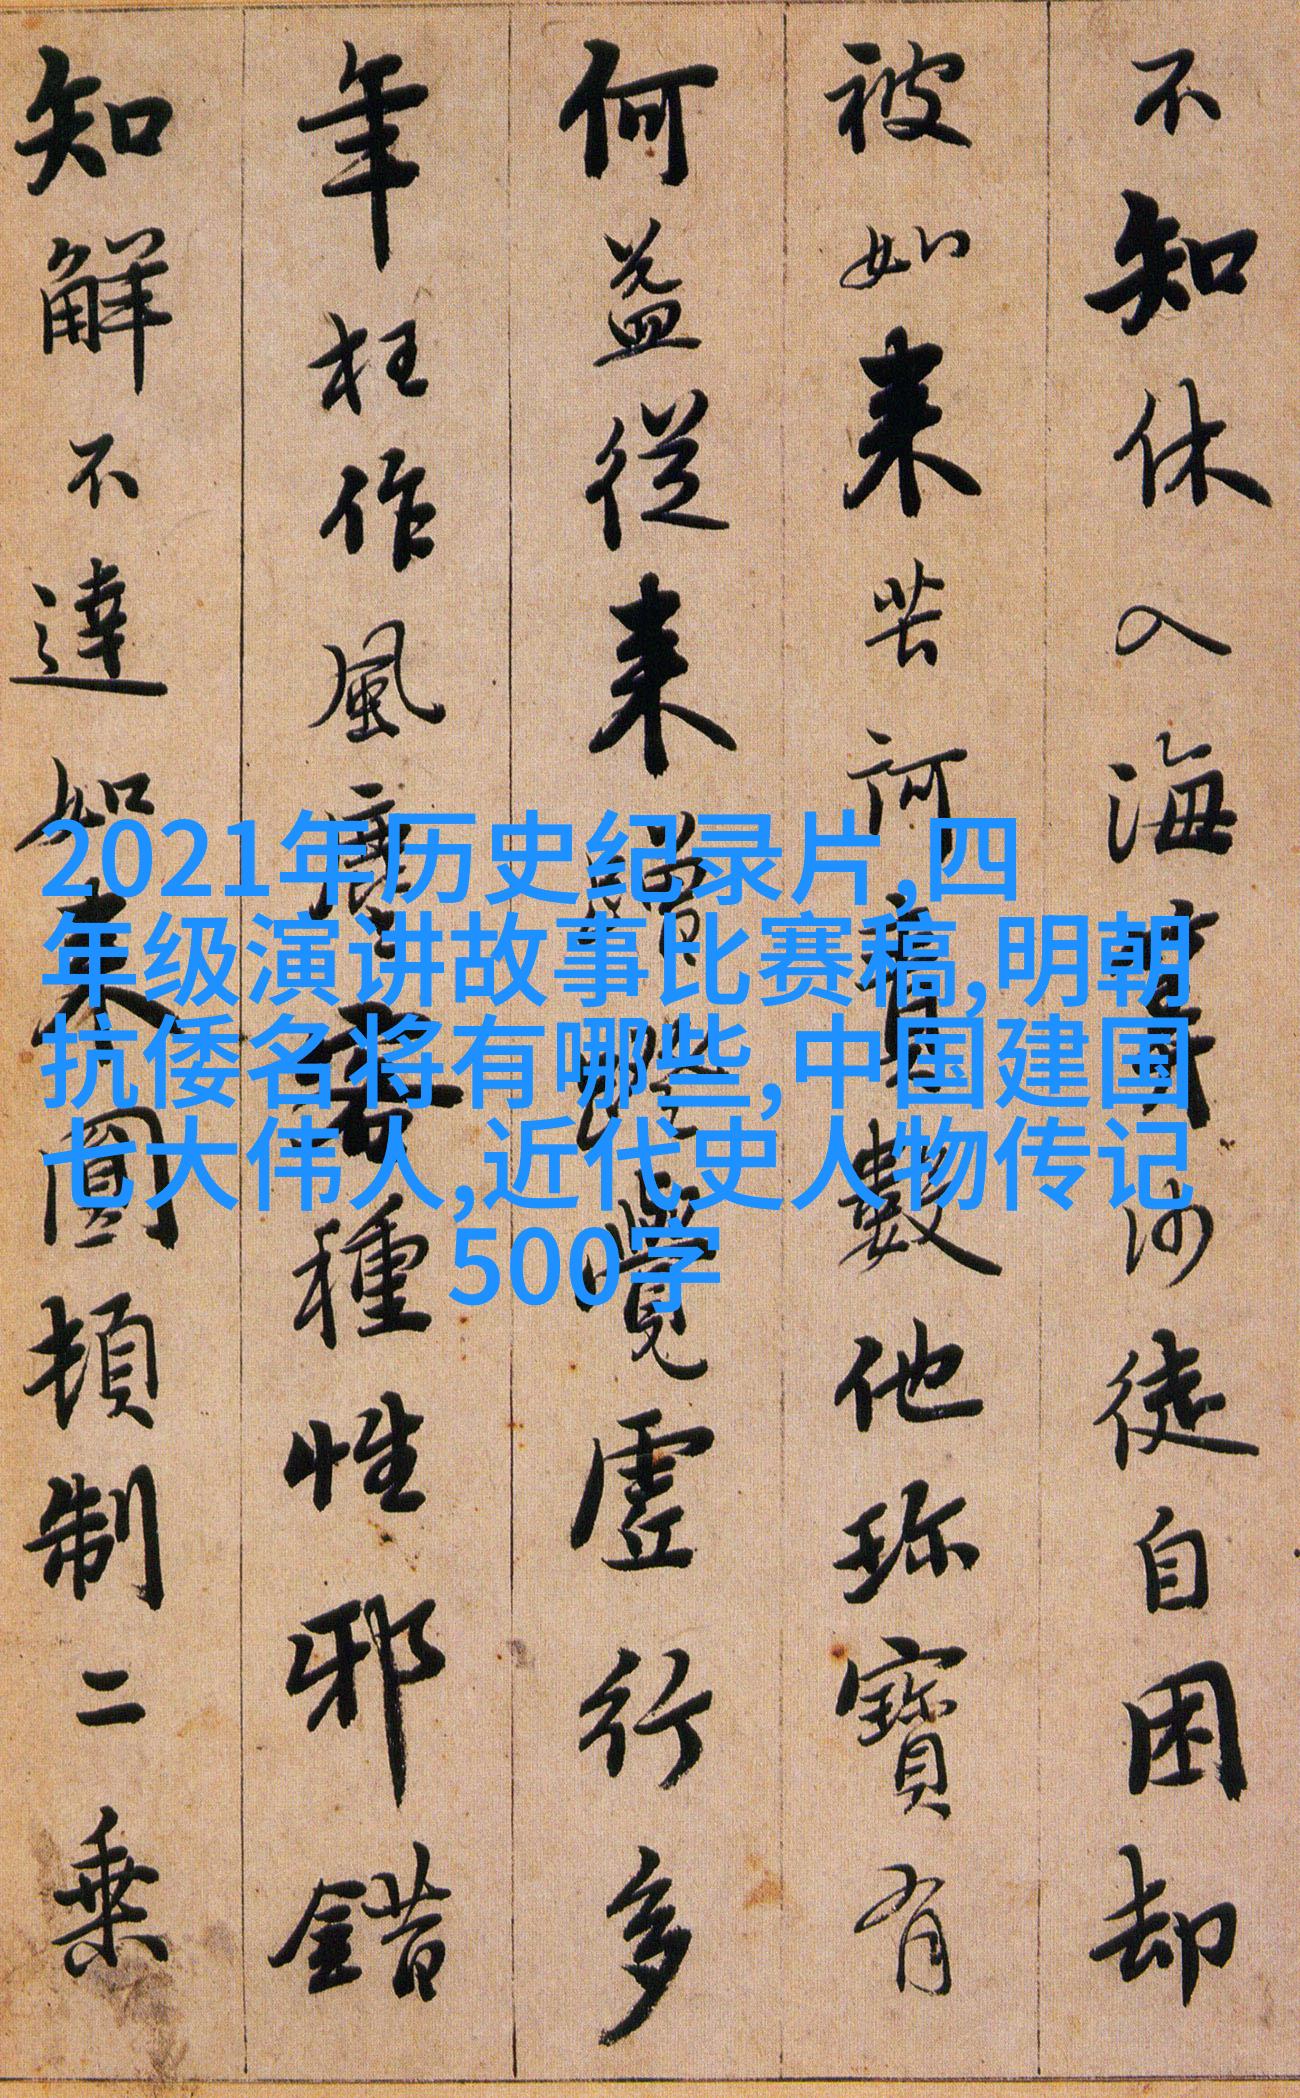 不知休入海算沙徒自困却
被如来苦訶責數他珎寶有
何益從来蹭蹬覺虛行多
年枉作風塵客種性邪錯
知解不達如来圓頓制二乗
2021年历史纪录片,四
年级演讲故事比赛稿,明朝
抗倭名将有哪些,中国建国
七大伟人,近代史人物传记
500字